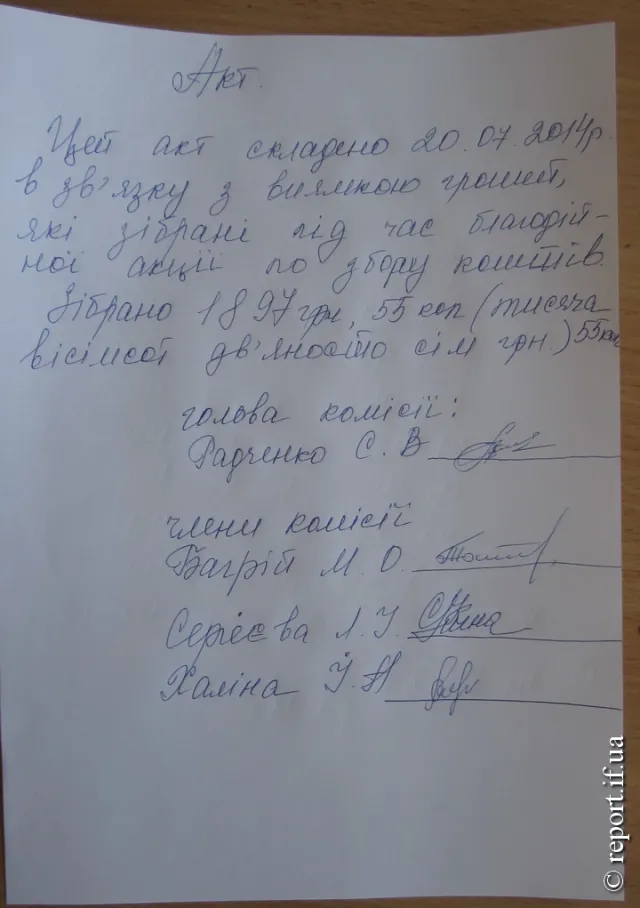 Акт.
Цей акт складено 20.07.2014р.
в зв'язку з виямкою грошей,
які зібрані під час благодій-
ної акції по збору коштів.
Зібрано 1897 грн, 55 коп (тисяча
вісімсот дв'яносто сім грн.) 55 коп
голова комісії:
Радченко С. В
члени комісії
Багрій М. О.
Сергєєва Л. І.
Халіна І. А
© report.if.ua